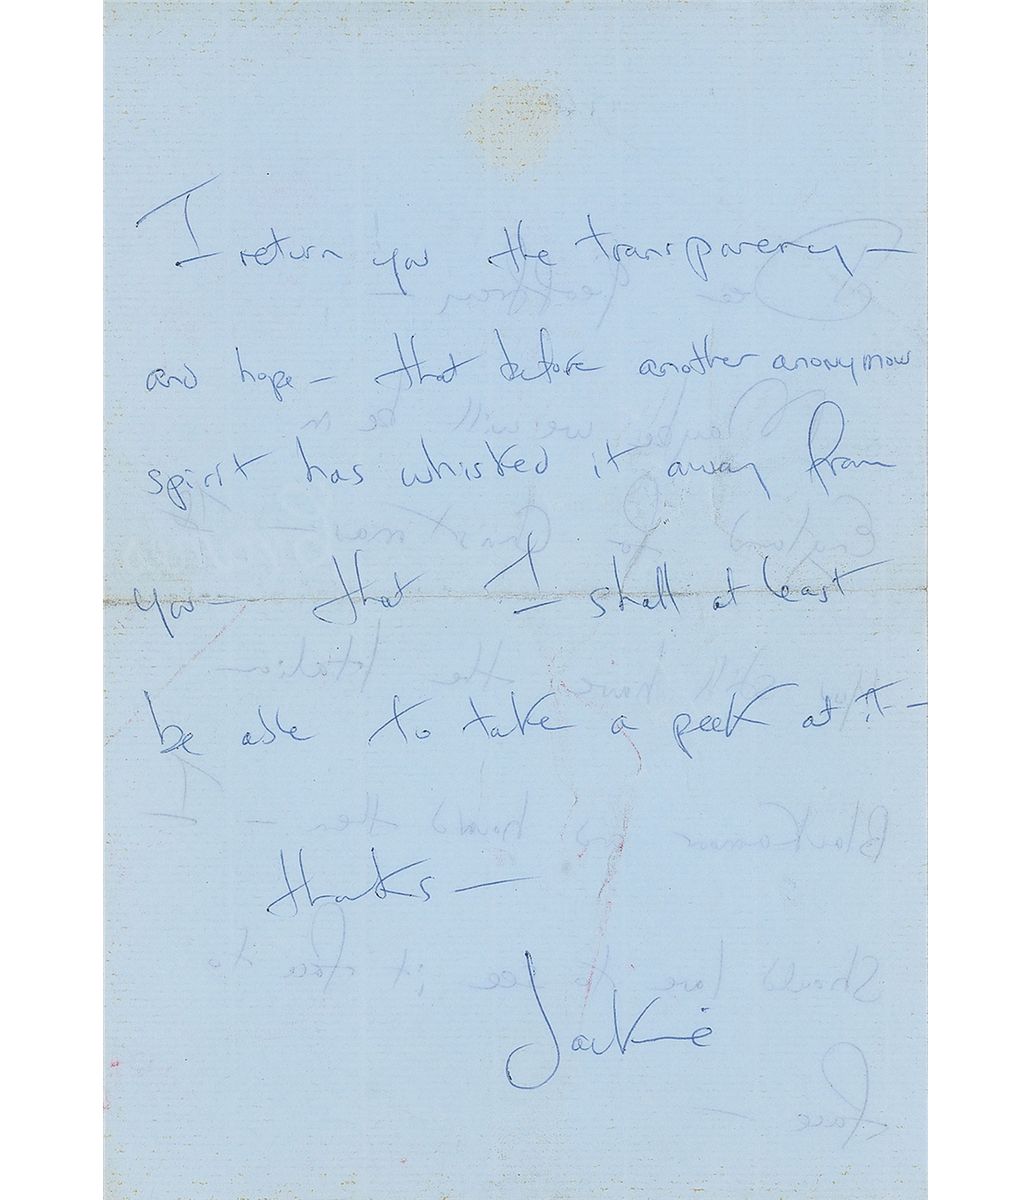 I return you the transparency –
and hope – that before another anonymous
spirit has whisked it away from
you – that I – shall at least
be able to take a peek at it –
thanks –
Jackie